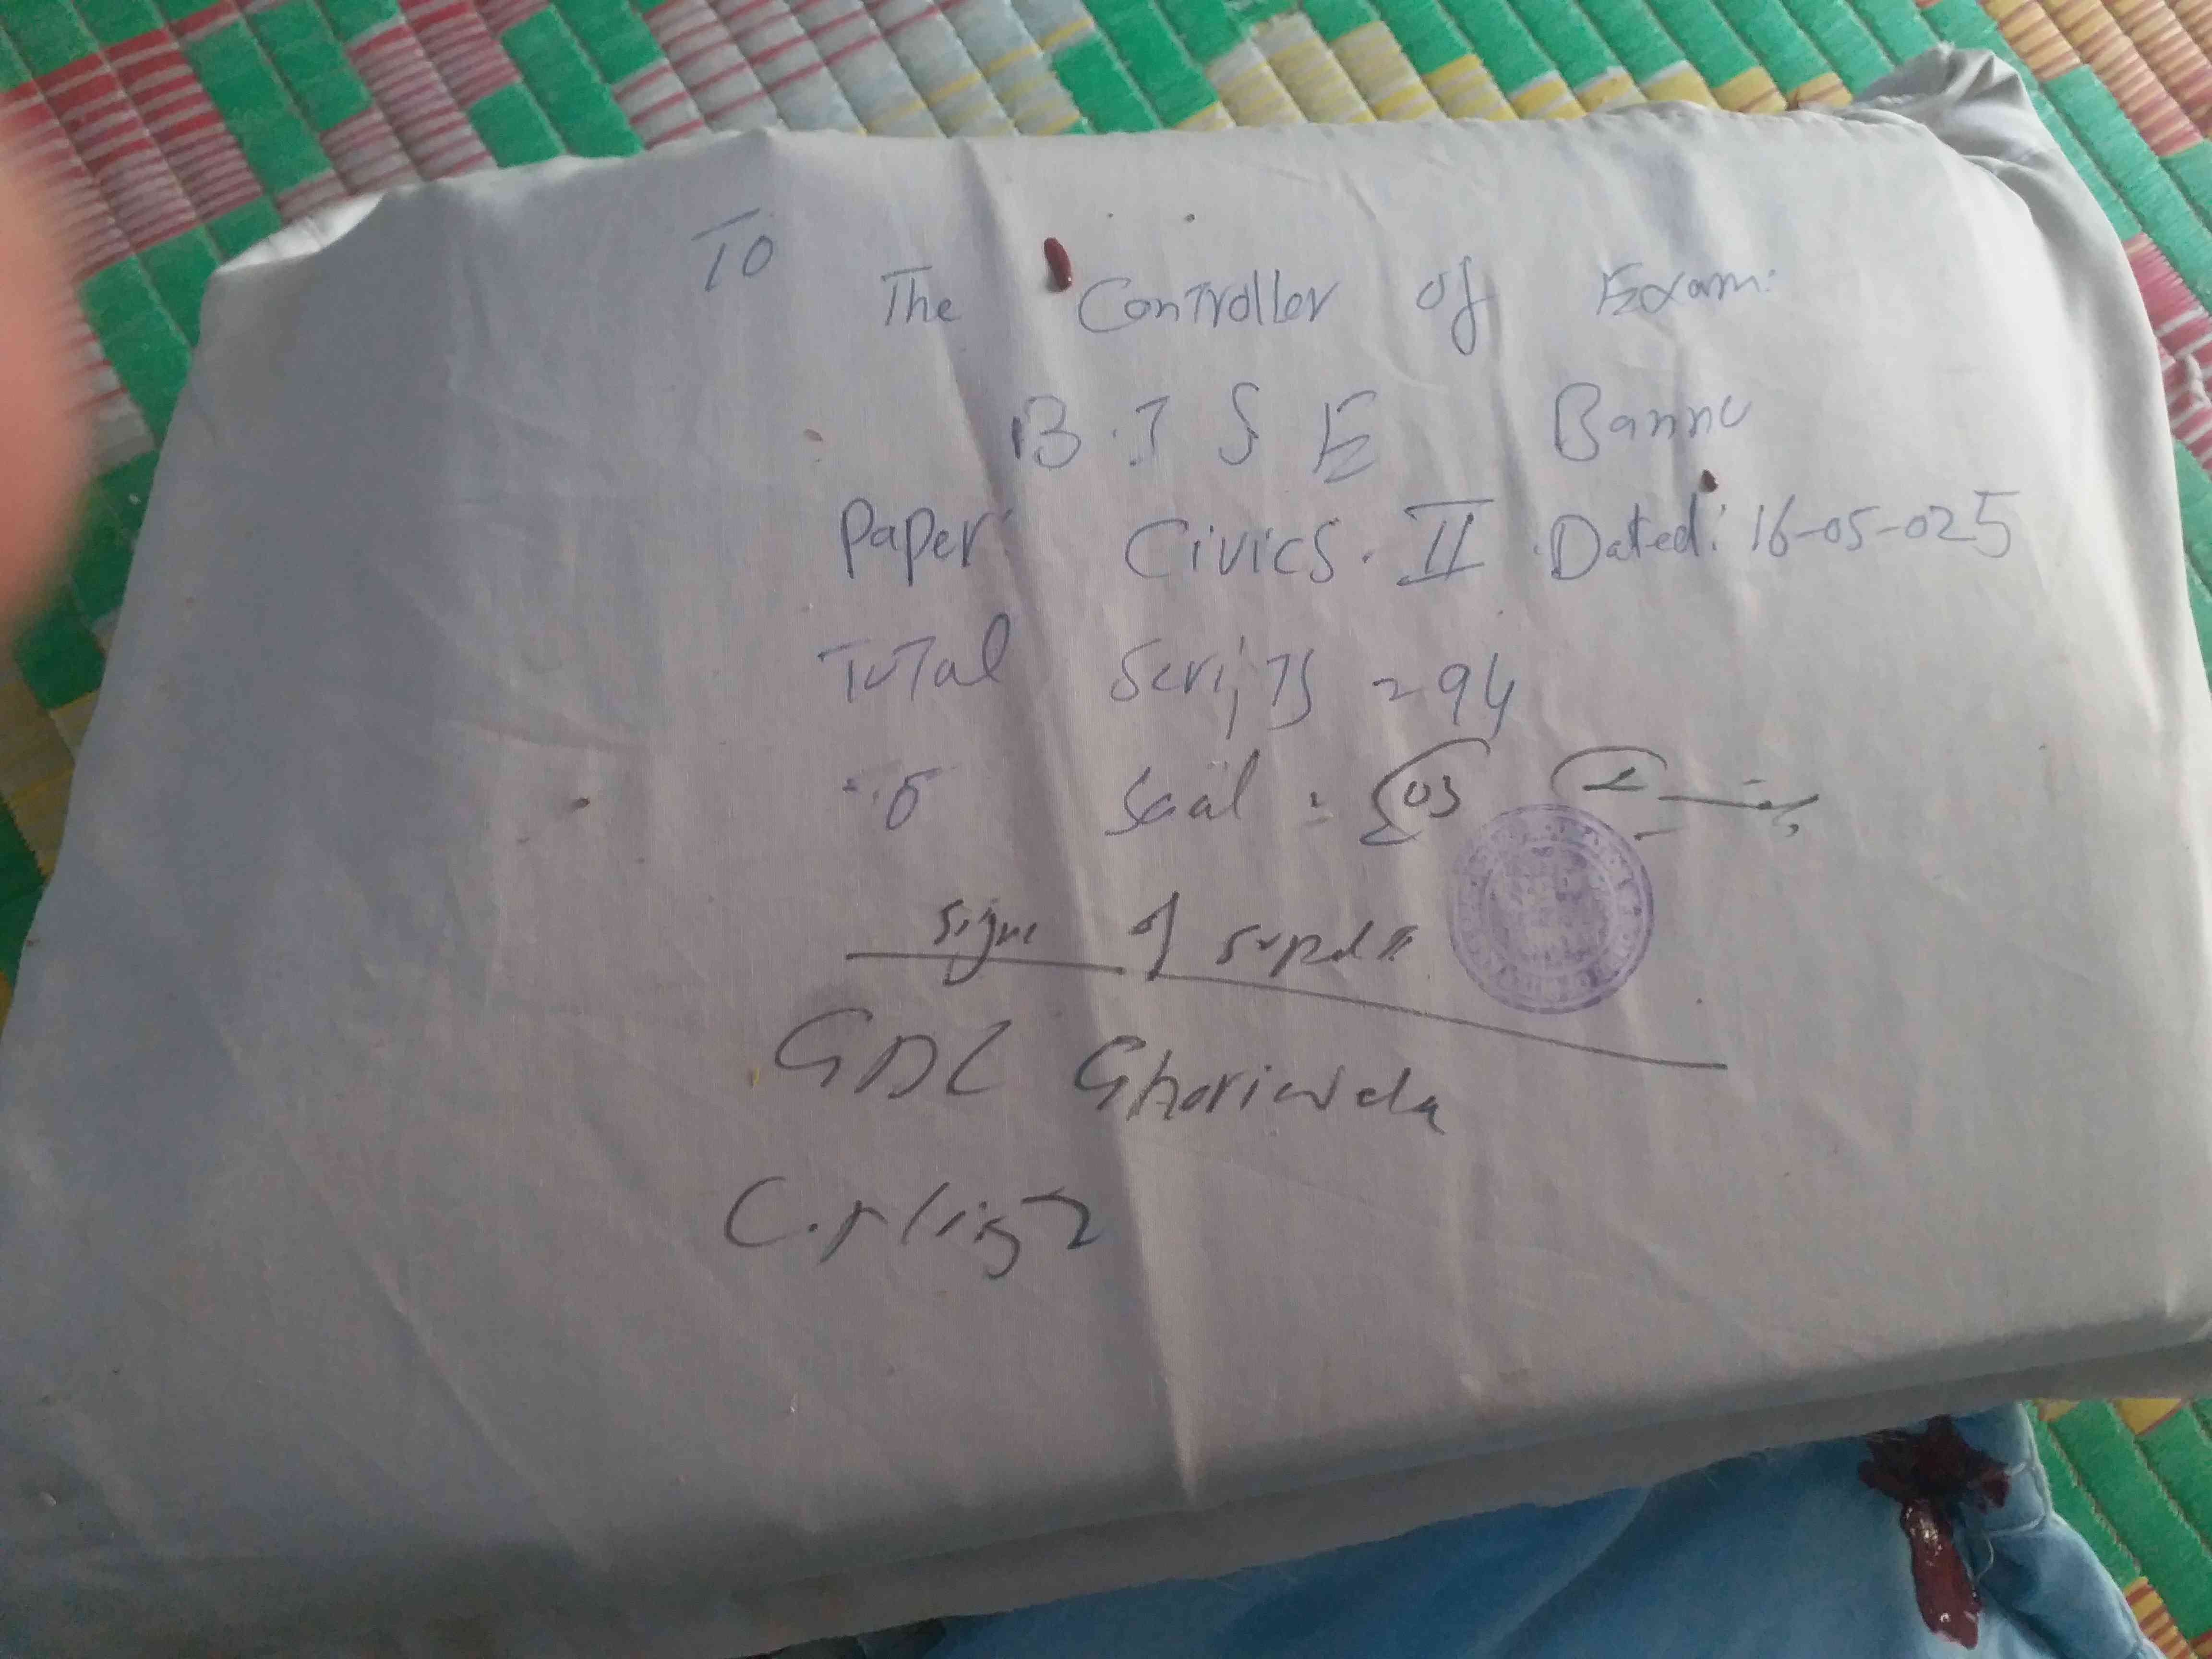 To
The Controller of Exam:
B.I S E Bannu
Paper: Civics. II Dated: 16-05-025
Total Scripts = 94
Saal = 03
Signe of supdtt
GDC Ghoriwala